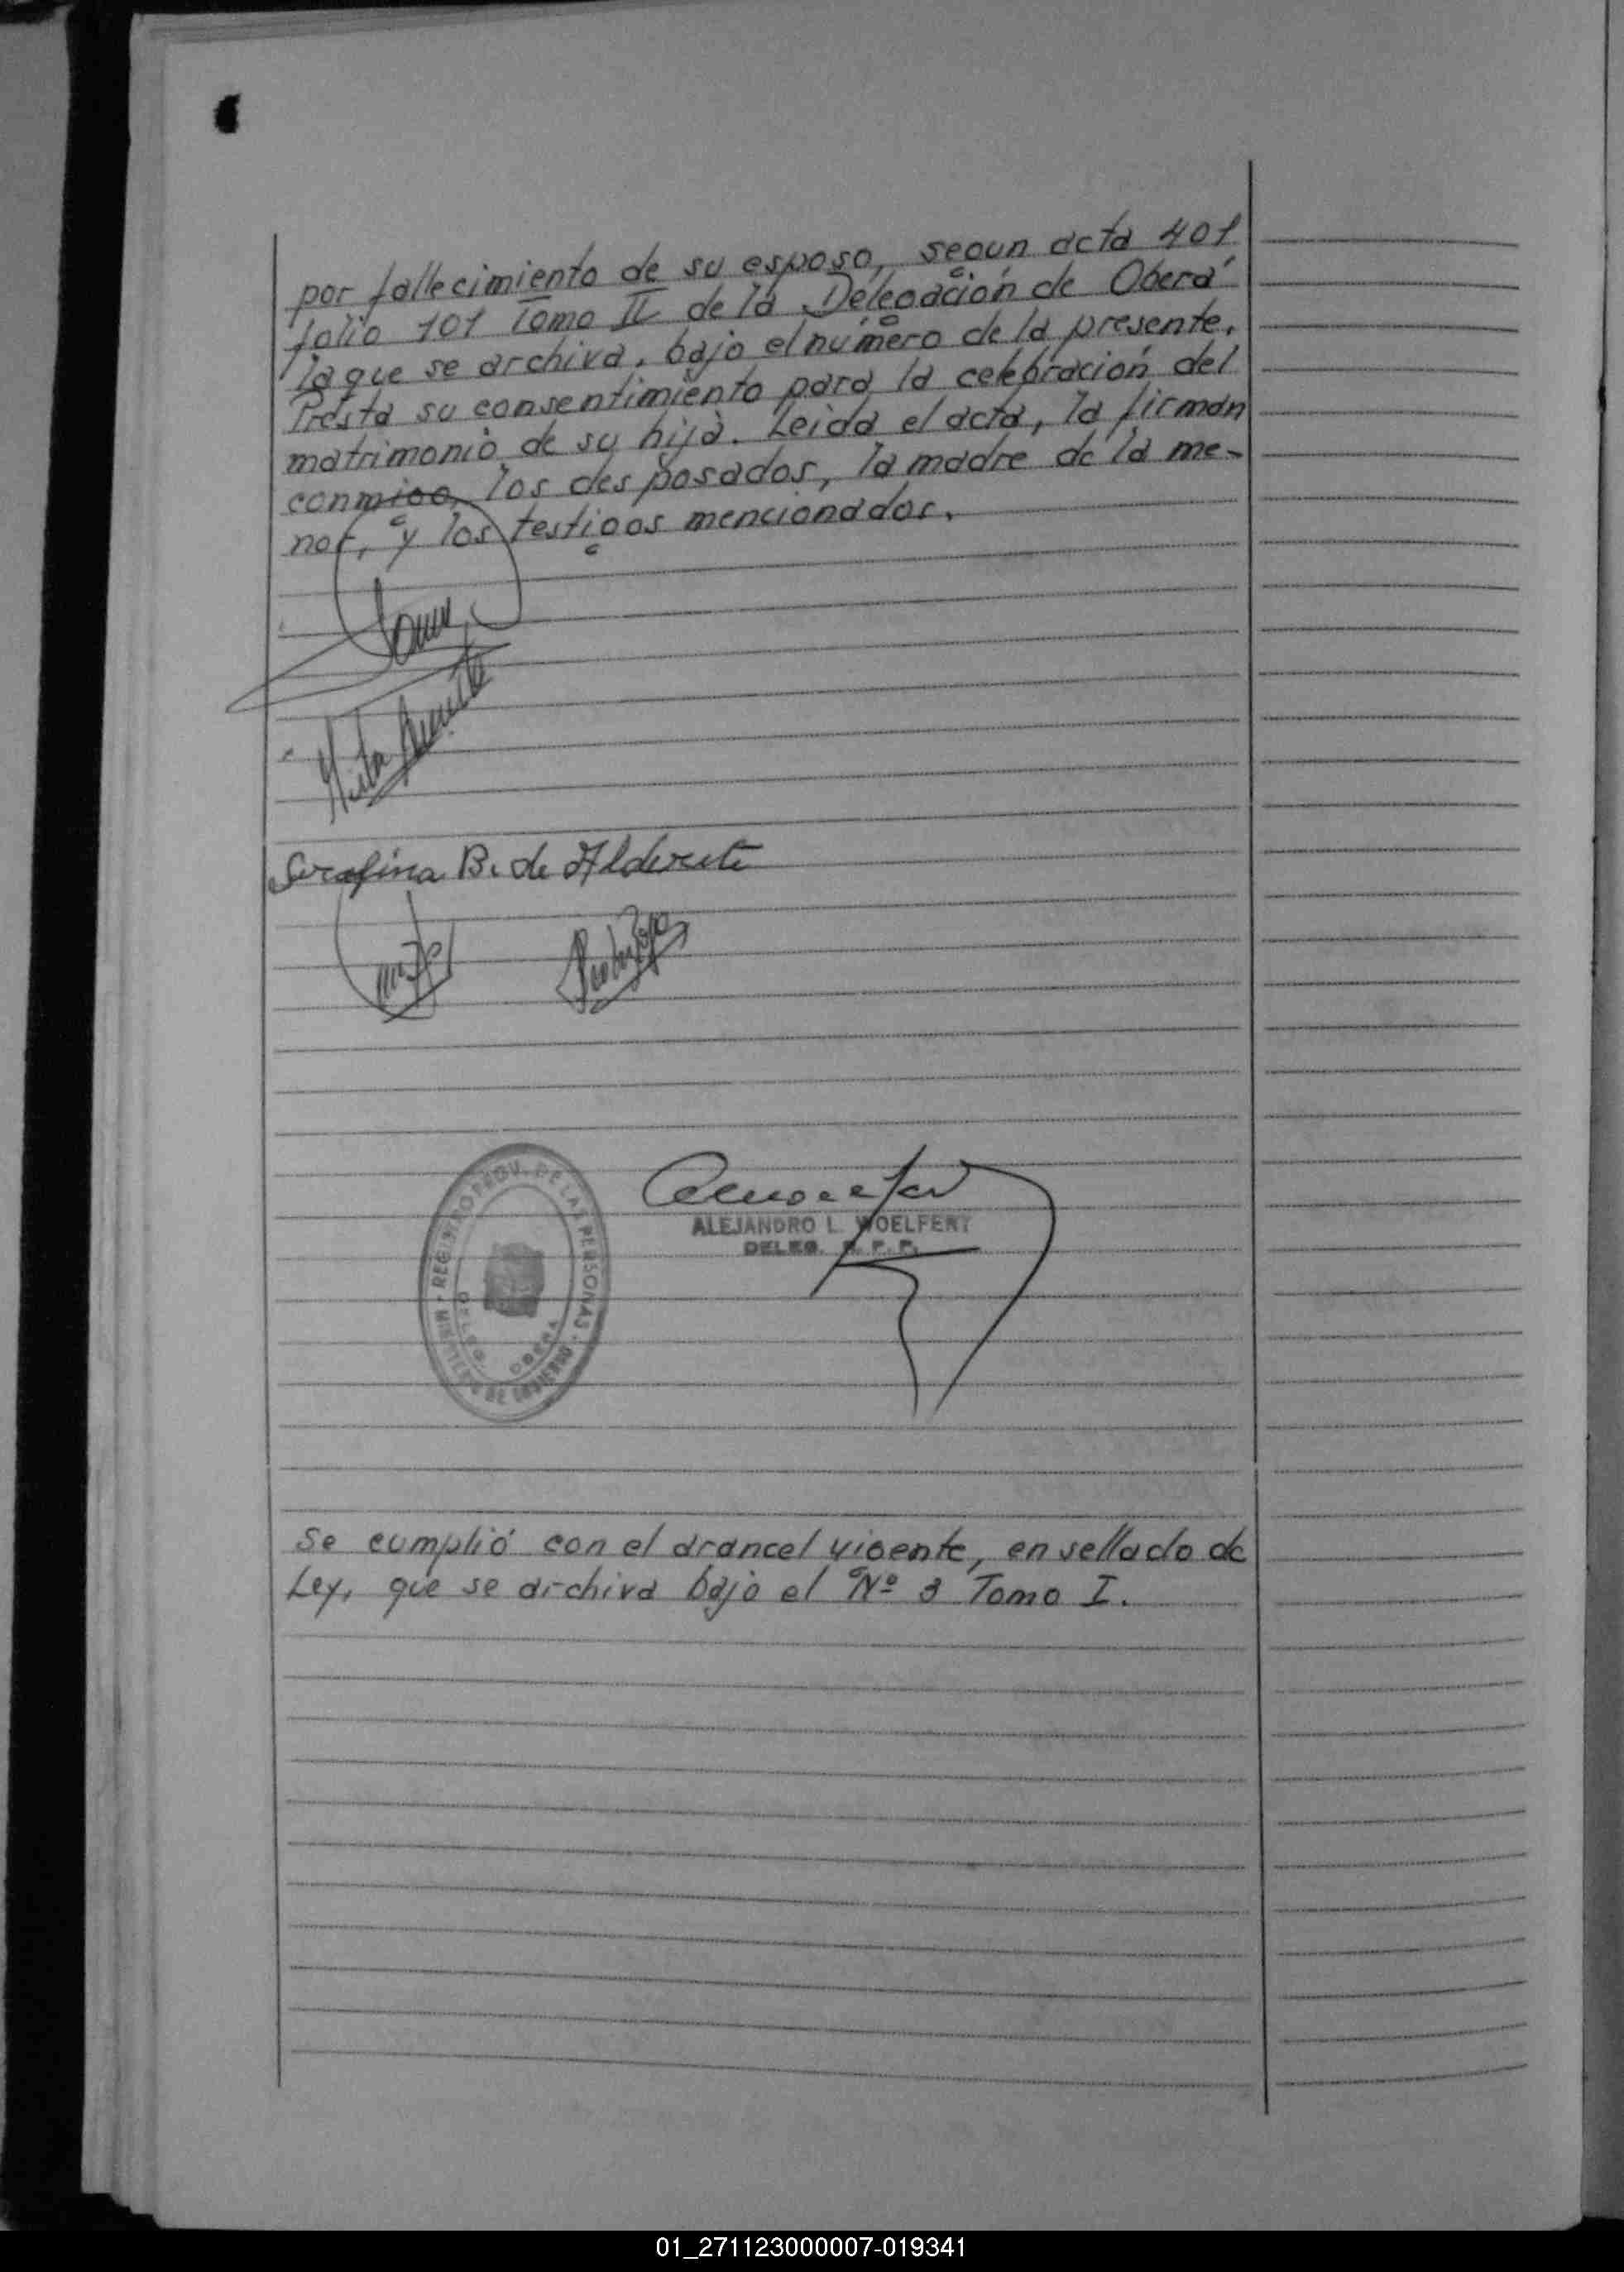 por fallecimiento de su esposo, segun acta 401
folio 101 Tomo II de la Delegación de Oberá
la que se archiva, bajo el número de la presente,
Presta su consentimiento para la celebración del
matrimonio de su hija. Leida el acta, la firman
conmigo, los desposados, la madre de la me-
nor, y los testigos mencionados.
Serafina B. de Alderete
REGISTRO PROV. DE LAS PERSONAS
MINISTERIO DE GOBIERNO
DELEG. OBERA
ALEJANDRO L. WOELFERT
DELEG. R. P. P.
Se cumplió con el arancel vigente, en sellado de
Ley, que se archiva bajo el Nº 3 Tomo I.
01_271123000007-019341